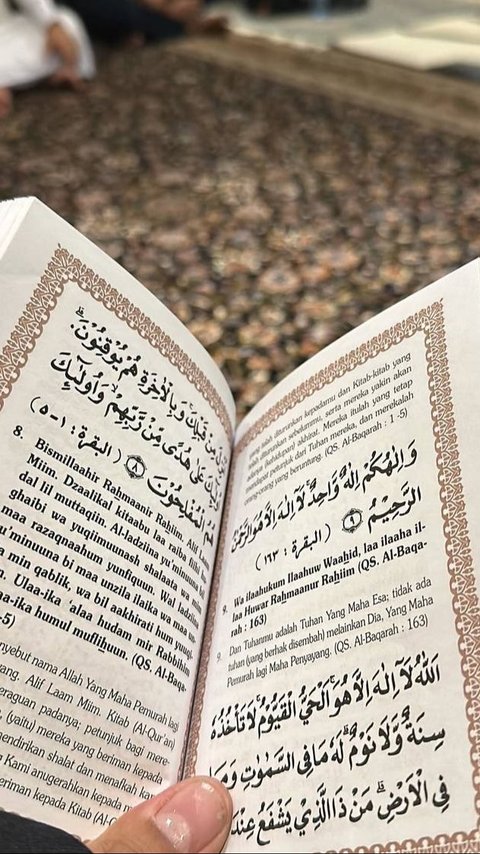 مِنْ قَبْلِكَ وَبِالْاٰخِرَةِ هُمْ يُوْقِنُوْنَۗ.
عَلٰى هُدًى مِّنْ رَّبِّهِمْ وَاُولٰۤىِٕكَ
هُمُ الْمُفْلِحُوْنَ ﴿٨﴾ (البقرة : ١-٥)
8. Bismillaahir Rahmaanir Rahiim. Alif Laam
Miim. Dzaalikal kitaabu laa raiba fiihi
dal lil muttaqiin. Al-ladziina yu'minuuna bil
ghaibi wa yuqiimuunash shalaata wa mim
maa razaqnaahum yunfiquun. Wal ladziina
yu'minuuna bi maa unzila ilaika wa maa
min qablik, wa bil aakhirati hum yuuqi-
Ulaa-ika 'alaa hudam mir Rabbihim
humul muflihuun. (QS. Al-Baqa-
-5)
nyebut nama Allah Yang Maha Pemurah lagi
Alif Laam Miim. Kitab (Al-Qur'an)
eraguan padanya; petunjuk bagi mere-
(yaitu) mereka yang beriman kepada
mendirikan shalat dan menafkah
Kami anugerahkan kepada
beriman kepada Kitab (Al-
yang telah diturunkan kepadamu dan Kitab-kitab yang
telah diturunkan sebelummu, serta mereka yakin akan
adanya (kehidupan) akhirat. Mereka itulah yang tetap
mendapat petunjuk dari Tuhan mereka, dan merekalah
orang-orang yang beruntung. (QS. Al-Baqarah : 1 -5)
وَاِلٰهُكُمْ اِلٰهٌ وَّاحِدٌۚ لَآ اِلٰهَ اِلَّا هُوَ الرَّحْمٰنُ
الرَّحِيْمُ ﴿٩﴾ (البقرة : ١٦٣)
9. Wa ilaahukum Ilaahuw Waahid, laa ilaaha il-
laa Huwar Rahmaanur Rahiim (QS. Al-Baqa-
rah : 163)
9. Dan Tuhanmu adalah Tuhan Yang Maha Esa; tidak ada
tuhan (yang berhak disembah) melainkan Dia, Yang Maha
Pemurah lagi Maha Penyayang. (QS. Al-Baqarah : 163)
اَللّٰهُ لَآ اِلٰهَ اِلَّا هُوَۚ اَلْحَيُّ الْقَيُّوْمُ ۚ لَا تَأْخُذُهٗ
سِنَةٌ وَّلَا نَوْمٌۗ لَهٗ مَا فِى السَّمٰوٰتِ وَمَا
فِى الْاَرْضِۗ مَنْ ذَا الَّذِيْ يَشْفَعُ عِنْدَ